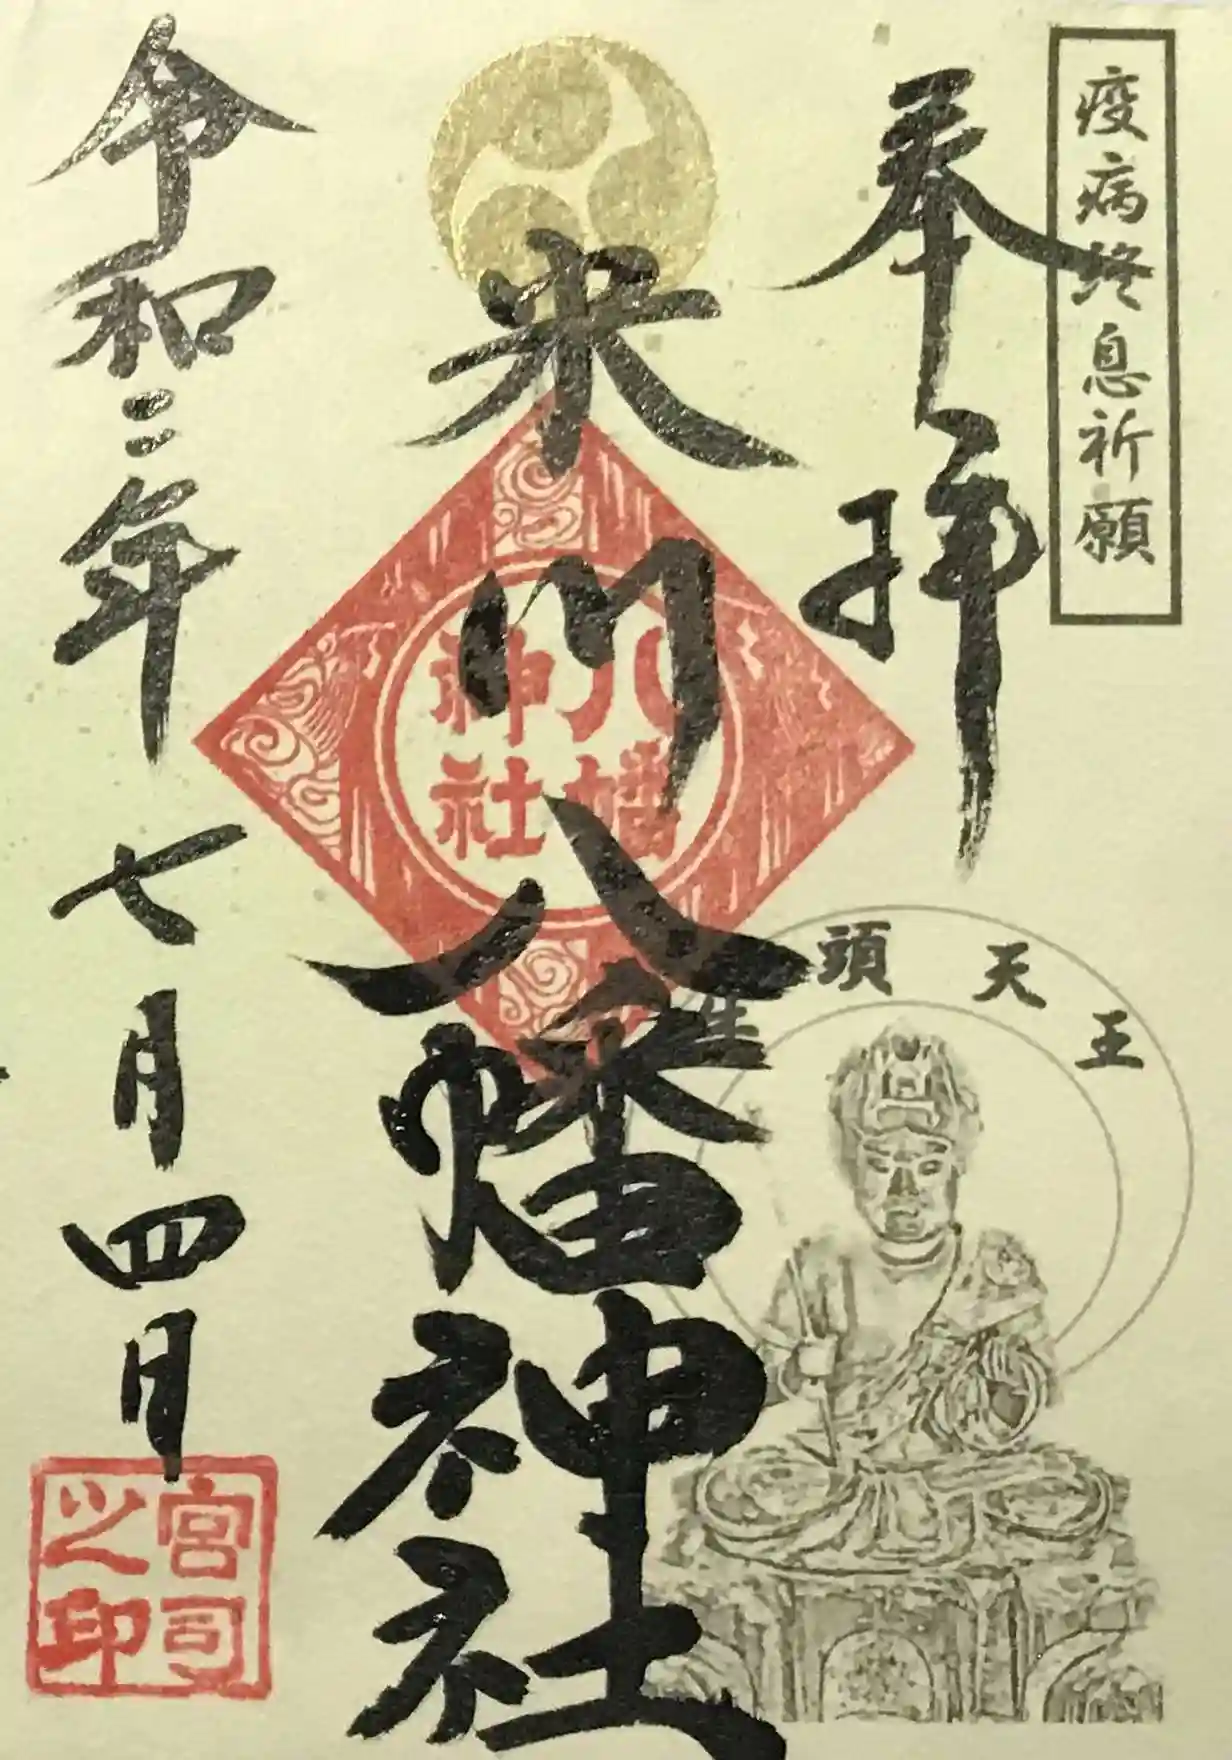 疫病終息祈願
奉拝
米川八幡神社
八幡
神社
牛頭天王
令和二年七月四日
宮司
之印